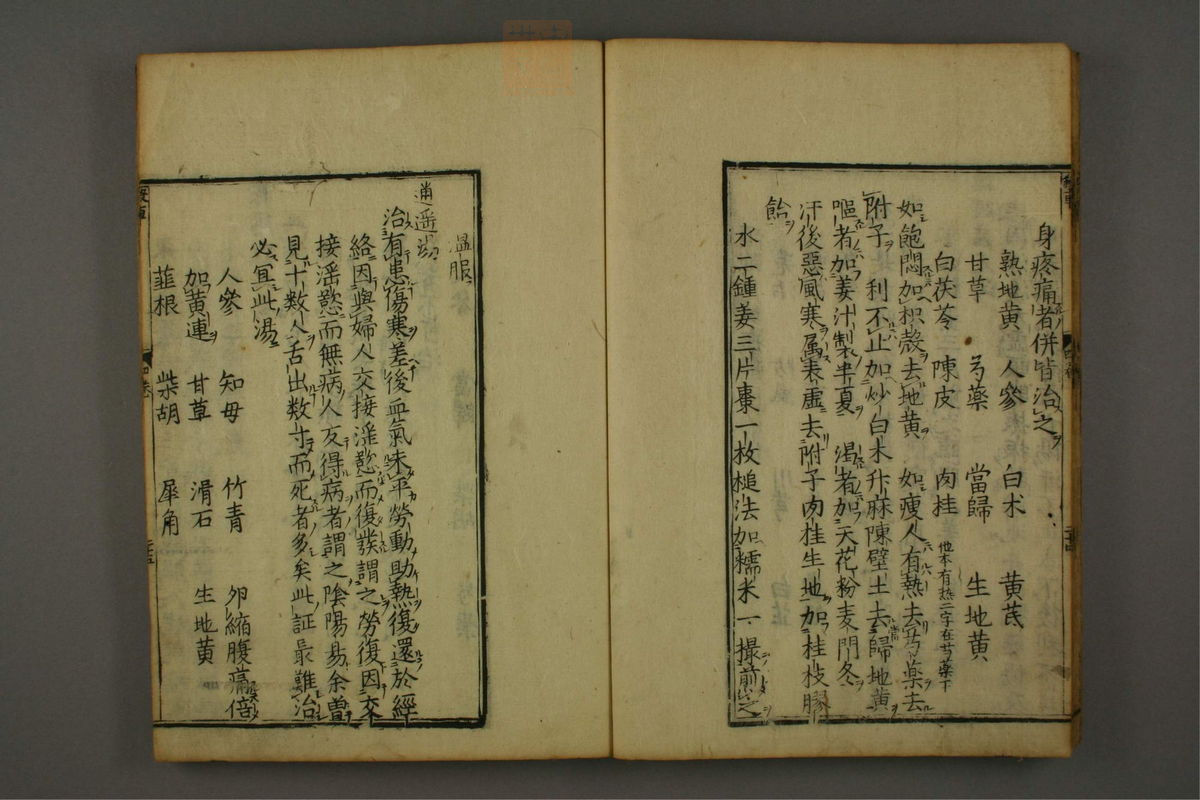 身疼痛者併皆治之
熟地黄 人參 白术 黄茋
甘草 芍藥 當歸 生地黄
白茯苓 陳皮 肉桂 他本有熱二字在芍藥下
如飽悶加枳殼去地黄 如瘦人有熱去芍藥去
附子 利不止加炒白术升麻陳壁土去歸地黄
嘔者加姜汁製半夏 渴者加天花粉麦門冬
汗後惡風寒属表虛去附子肉桂生地加桂枝膠
飴
水二鍾姜三片棗一枚槌法加糯米一撮煎之
温服
逍遥湯
治有患傷寒差後血氣未平勞動助熱復還於經
絡因與婦人交接滛慾而復發謂之勞復因交
接滛慾而無病人反得病者謂之陰陽易余曽
見十数人舌出数寸而死者多矣此証最難治
必冝此湯
人參 知母 竹青 夘縮腹痛倍
加黄連 甘草 滑石 生地黄
韮根 柴胡 犀角